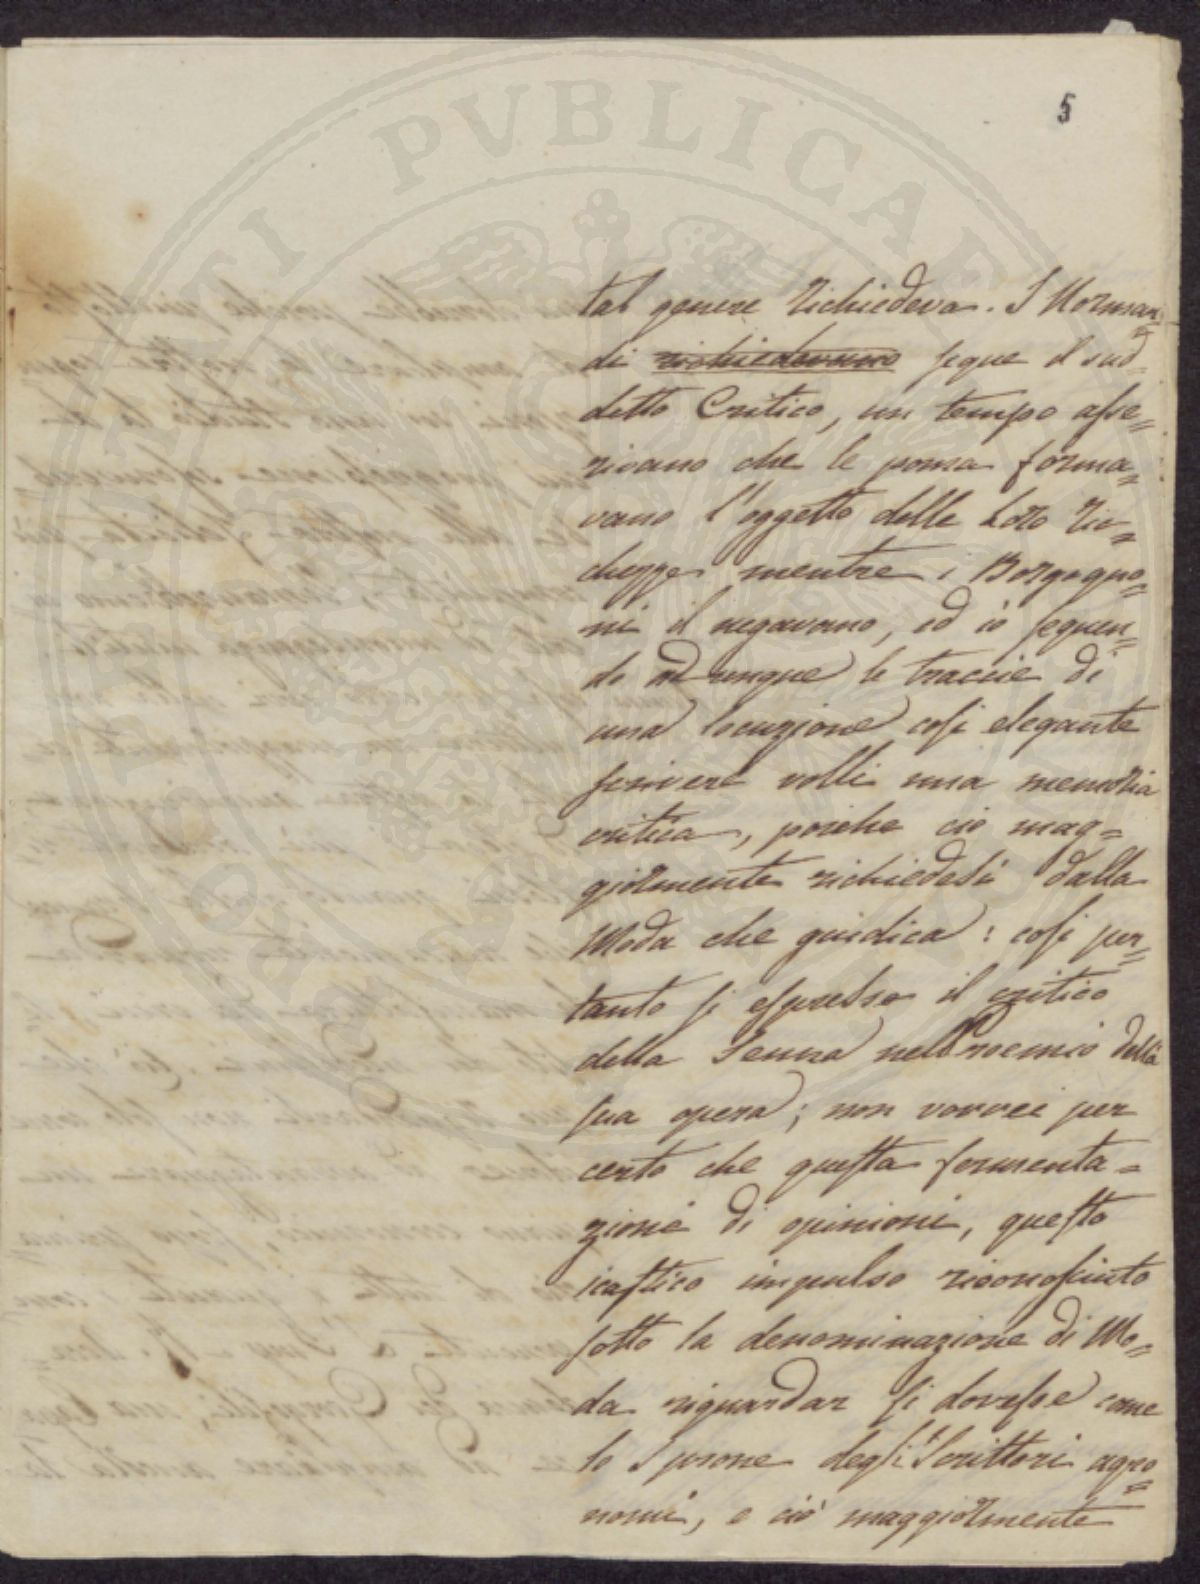 5
tal genere richiedeva. I Norman=
di richiedevano segue il sud=
detto Critico, un tempo asse=
rivano che le poma forma=
vano l'oggetto delle Loro ric=
chezze mentre i Borgogno=
ni il negavano, ed io seguen=
do adunque le traccie di
una locuzione così elegante
scrivere volli una memoria
critica, poiche ciò mag=
giormente richiedesi dalla
Moda che giudica: così per=
tanto si espresse il critico
della Senna nell Proemio della
sua opera; non vorrei per
certo che questa fermenta=
zione di opinioni, questo
icastico impulso riconosciuto
sotto la denominazione di Mo=
da riguardar si dovesse come
lo Sprone degli Scrittori agro=
nomi, e ciò maggiormente